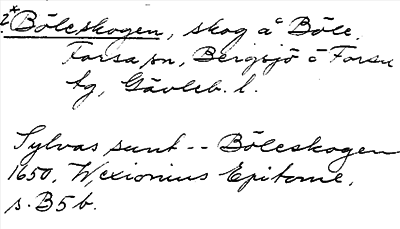 ?* Böleskogen, skog å Böle,
Forsa sn, Bergsjö o Forsa
tg, Gävleb. l.
Sylvas sunt -- Böleskogen
1650. Wexionius Epitome,
s. B5b.